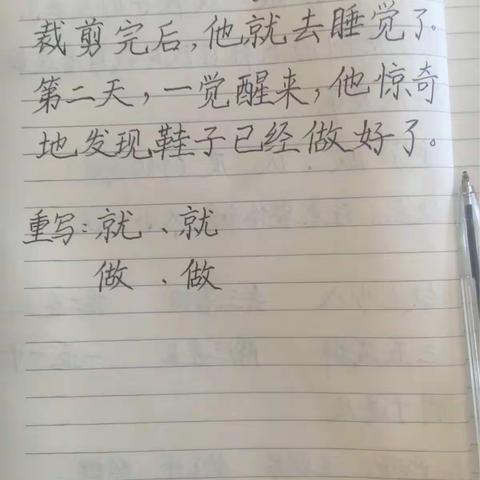 裁剪完后,他就去睡觉了.
第二天,一觉醒来,他惊奇
地发现鞋子已经做好了。
重写:就、就
做、做